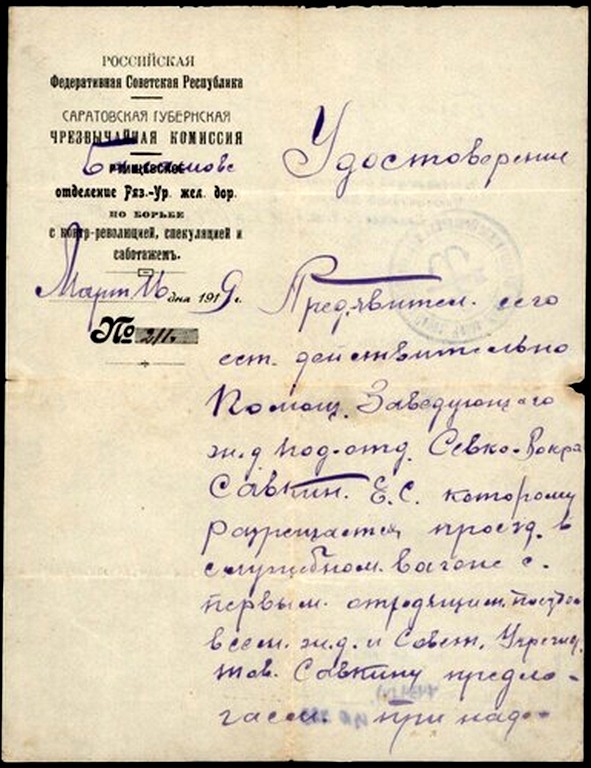 РОССИЙСКАЯ
Федеративная Советская Республика
САРАТОВСКАЯ ГУБЕРНСКАЯ
ЧРЕЗВЫЧАЙНАЯ КОМИССИЯ
РТИЩЕВСКОЕ
отделение Ряз.-Ур. жел. дор.
ПО БОРЬБЕ
с контр-революцией, спекуляцией и
саботажемъ.
Март 16 дня 1919 г.
№ 211.
Удостоверение
Предъявител. сего
ест. действительно
Помощ. Заведующего
ж.д под-отд.
Савкин. Е.С. которому
разрешается проезд. в
служебном. вагоне с.
первым. отходящим.
всем. ж.д. и Совет.
тов. Савкину предло-
гаем. при надо-